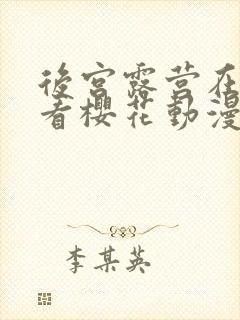 後宮露营在
看櫻花動漫
李某英